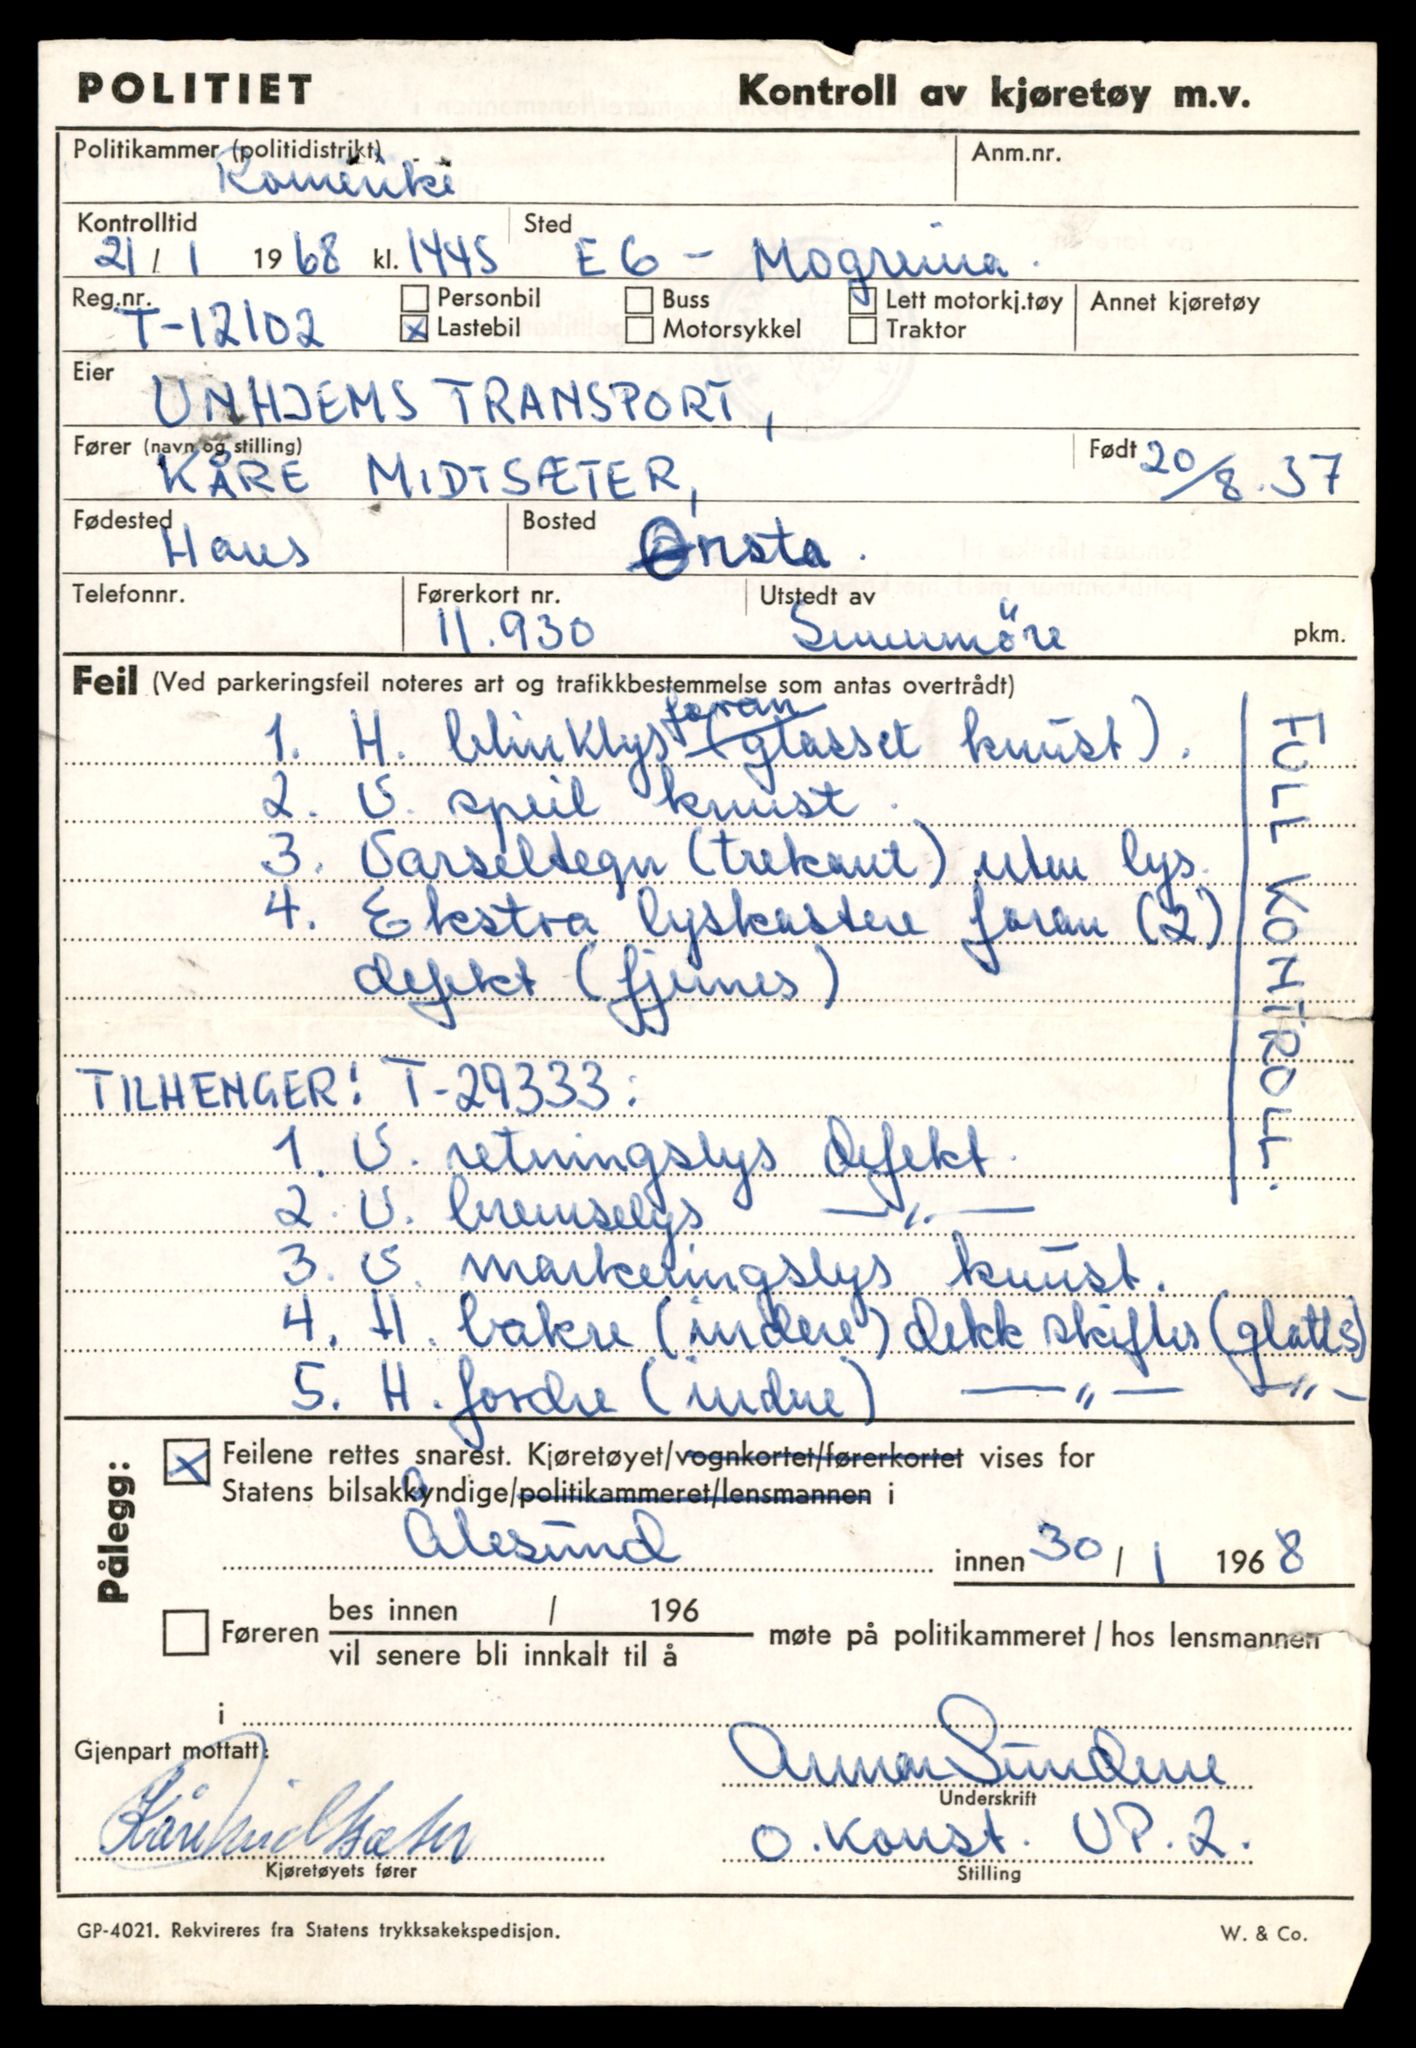 POLITIET Kontroll av kjøretøy m.v.
Politikammer (politidistrikt) Anm.nr.
Romerike
Kontrolltid Sted
21 / 1 1968 kl. 1445 E 6 - Mogreina.
Reg.nr. Personbil Buss Lett motorkj.tøy Annet kjøretøy
T-12102 x Lastebil Motorsykkel Traktor
Eier
UNHJEMS TRANSPORT,
Fører (navn og stilling) Født 20/8.37
KÅRE MIDTSÆTER,
Fødested Bosted
Hans Ørsta.
Telefonnr. Førerkort nr. Utstedt av
11.930 Sunnmöre pkm.
Feil (Ved parkeringsfeil noteres art og trafikkbestemmelse som antas overtrådt)
foran
1. H. blinklys (glasset knust).
2. V. speil knust.
3. Varseltegn (trekant) uten lys.
4. Ekstra lyskastere foran (2)
defekt (fjernes)
FULL KONTROLL.
TILHENGER: T-29333:
1. V. retningslys defekt.
2. V. bremselys —„—
3. V. markeringslys knust.
4. H. bakre (indre) dekk skiftes (glatts)
5. H. fordre (indre) —„— —„—
Pålegg:
x Feilene rettes snarest. Kjøretøyet/vognkortet/førerkortet vises for
Statens bilsakkyndige/politikammeret/lensmannen i
Ålesund innen 30 / 1 1968
bes innen / 196
Føreren møte på politikammeret / hos lensmannen
vil senere bli innkalt til å
i
Gjenpart mottatt:
Kåre Midtsæter Arnar Sundene
Underskrift
o. konst. UP. 2.
Kjøretøyets fører Stilling
GP-4021. Rekvireres fra Statens trykksakekspedisjon. W. & Co.